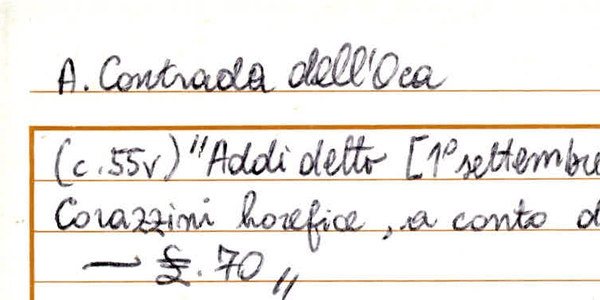 A. Contrada dell'Oca
(c.55v) "Addi detto [1° settembre
Corazzini horefice, a conto d
— £. 70 "